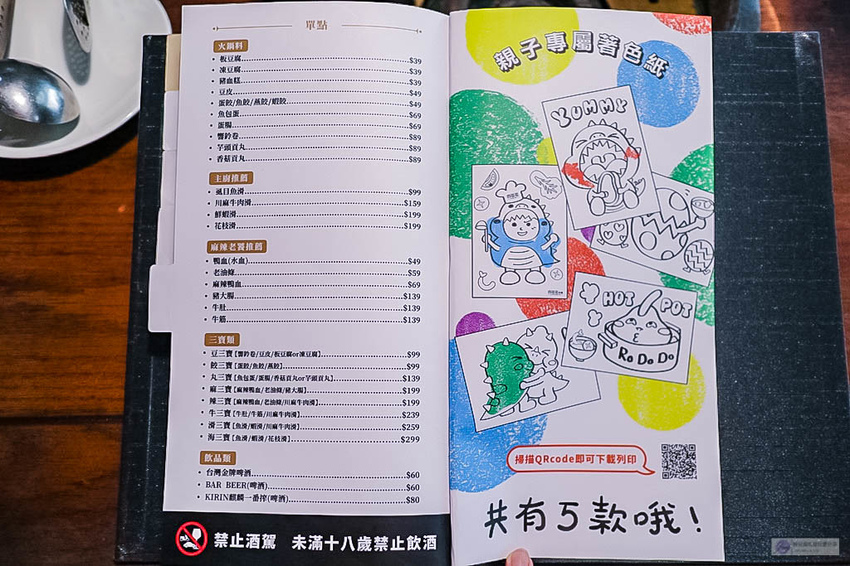 單點
火鍋料
板豆腐 $39
凍豆腐 $39
豬血糕 $39
豆皮 $49
蛋餃/魚餃/燕餃/蝦餃 $49
魚包蛋 $69
蛋腸 $69
響鈴卷 $89
芋頭貢丸 $89
香菇貢丸 $89
主廚推薦
虱目魚滑 $99
川麻牛肉滑 $159
鮮蝦滑 $199
花枝滑 $199
麻辣老饕推薦
鴨血(水血) $49
老油條 $59
麻辣鴨血 $69
豬大腸 $139
牛肚 $139
牛筋 $139
三寶類
豆三寶【響鈴卷/豆皮/板豆腐or凍豆腐】 $99
餃三寶【蛋餃/魚餃/燕餃】 $99
丸三寶【魚包蛋/蛋腸/香菇貢丸or芋頭貢丸】 $139
麻三寶【麻辣鴨血/老油條/豬大腸】 $199
辣三寶【麻辣鴨血/老油條/川麻牛肉滑】 $199
牛三寶【牛肚/牛筋/川麻牛肉滑】 $239
滑三寶【魚滑/蝦滑/川麻牛肉滑】 $259
海三寶【魚滑/蝦滑/花枝滑】 $299
飲品類
台灣金牌啤酒 $60
BAR BEER(啤酒) $60
KIRIN麒麟一番搾(啤酒) $80
禁止酒駕 未滿十八歲禁止飲酒
親子專屬著色紙
YUMMY
HOT POT
Ro Do Do
掃描QRcode即可下載列印
共有5款哦！